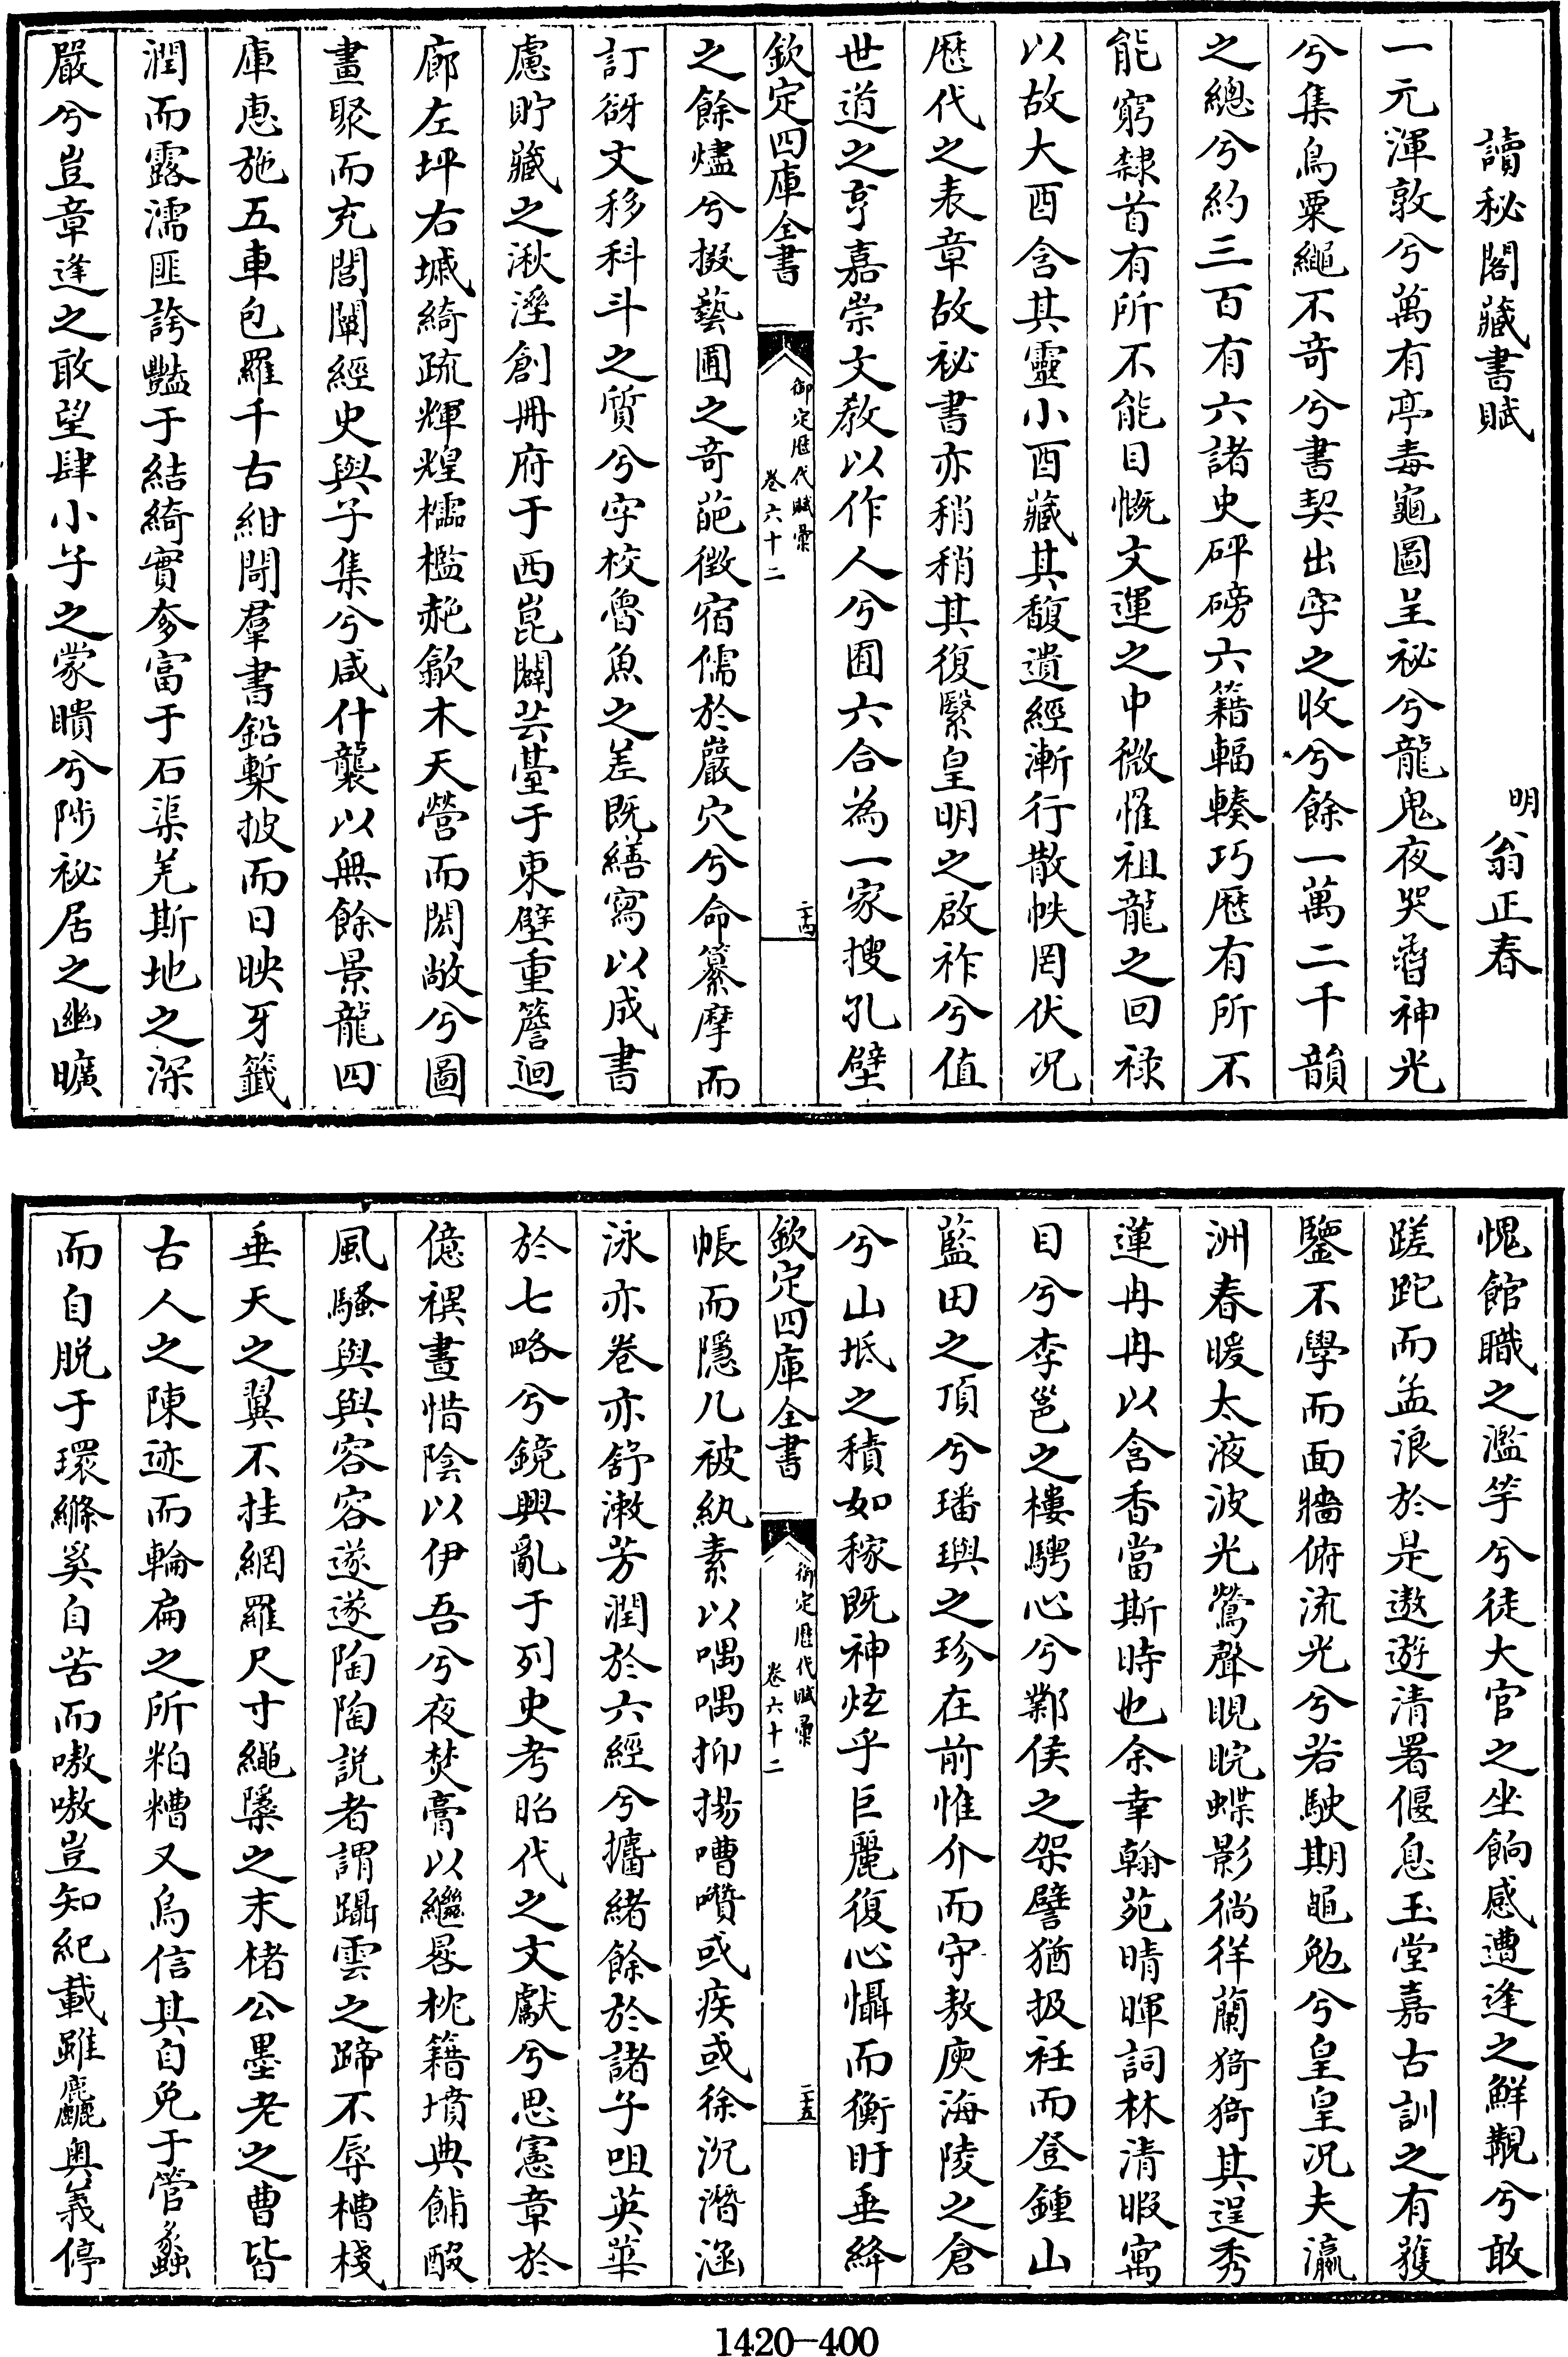 讀秘閣藏書賦
明翁正春
一元渾敦兮萬有亭毒龜圖呈秘兮龍鬼夜哭暨神光
兮集鳥粟繩不奇兮書契出字之收兮餘一萬二千韻
之總兮約三百有六諸史砰磅六籍輻輳巧歷有所不
能窮隸首有所不能目慨文運之中微惟祖龍之回祿
以故大酉含其靈小酉藏其馥遺經漸行散帙罔伏况
歷代之表章故祕書亦稍稍其復繄皇明之啟祚兮值
世道之亨嘉崇文教以作人兮囿六合為一家搜孔壁
欽定四庫全書
御定歷代賦彙
卷六十二
二十四
之餘燼兮掇藝圃之奇葩徵宿儒於巖穴兮命纂摩而
訂谺文移科斗之質兮字校魯魚之差既繕寫以成書
慮貯藏之湫溼創冊府于西崑闢芸臺于東壁重簷迴
廊左坪右墄綺疏輝煌櫺檻赩歙木天營而閎敞兮圖
畫聚而充閭闡經史與子集兮咸什襲以無餘景龍四
庫惠施五車包羅千古紺閜羣書鉛槧披而日映牙籤
潤而露濡匪誇豔于結綺實奓富于石渠羌斯地之深
嚴兮豈章逢之敢望肆小子之蒙瞶兮陟祕居之幽曠
愧館職之濫竽兮徒大官之坐餉感遭逢之鮮覯兮敢
蹉跎而孟浪於是遨遊清署偃息玉堂嘉古訓之有獲
鑒不學而面牆俯流光兮若駛期黽勉兮皇皇况夫瀛
洲春暖太液波光鶯聲睍睆蝶影徜徉蘭猗猗其逞秀
蓮冉冉以含香當斯時也余幸翰苑晴暉詞林清暇寓
目兮李邕之樓騁心兮鄴侯之架譬猶扱衽而登鍾山
藍田之頂兮璠璵之珍在前惟介而守敖庾海陵之倉
兮山坻之積如稼既神炫乎巨麗復心懾而衡盱垂絳
欽定四庫全書
御定歷代賦彙
卷六十二
二十五
帳而隱几被紈素以喁喁抑揚嘈囋或疾或徐沉潛涵
泳亦卷亦舒漱芳潤於六經兮攟緒餘於諸子咀英華
於七略兮鏡興亂于列史考昭代之文獻兮思憲章於
億禩晝惜陰以伊吾兮夜焚膏以繼晷枕籍墳典餔醊
風騷與與容容遂遂陶陶說者謂躡雲之蹄不辱槽棧
垂天之翼不挂網羅尺寸繩檃之末楮公墨老之曹皆
古人之陳迹而輪扁之所粕糟又烏信其自免于管蠡
而自脫于環縧奚自苦而嗷嗷豈知紀載雖麤奥義停
1420-400